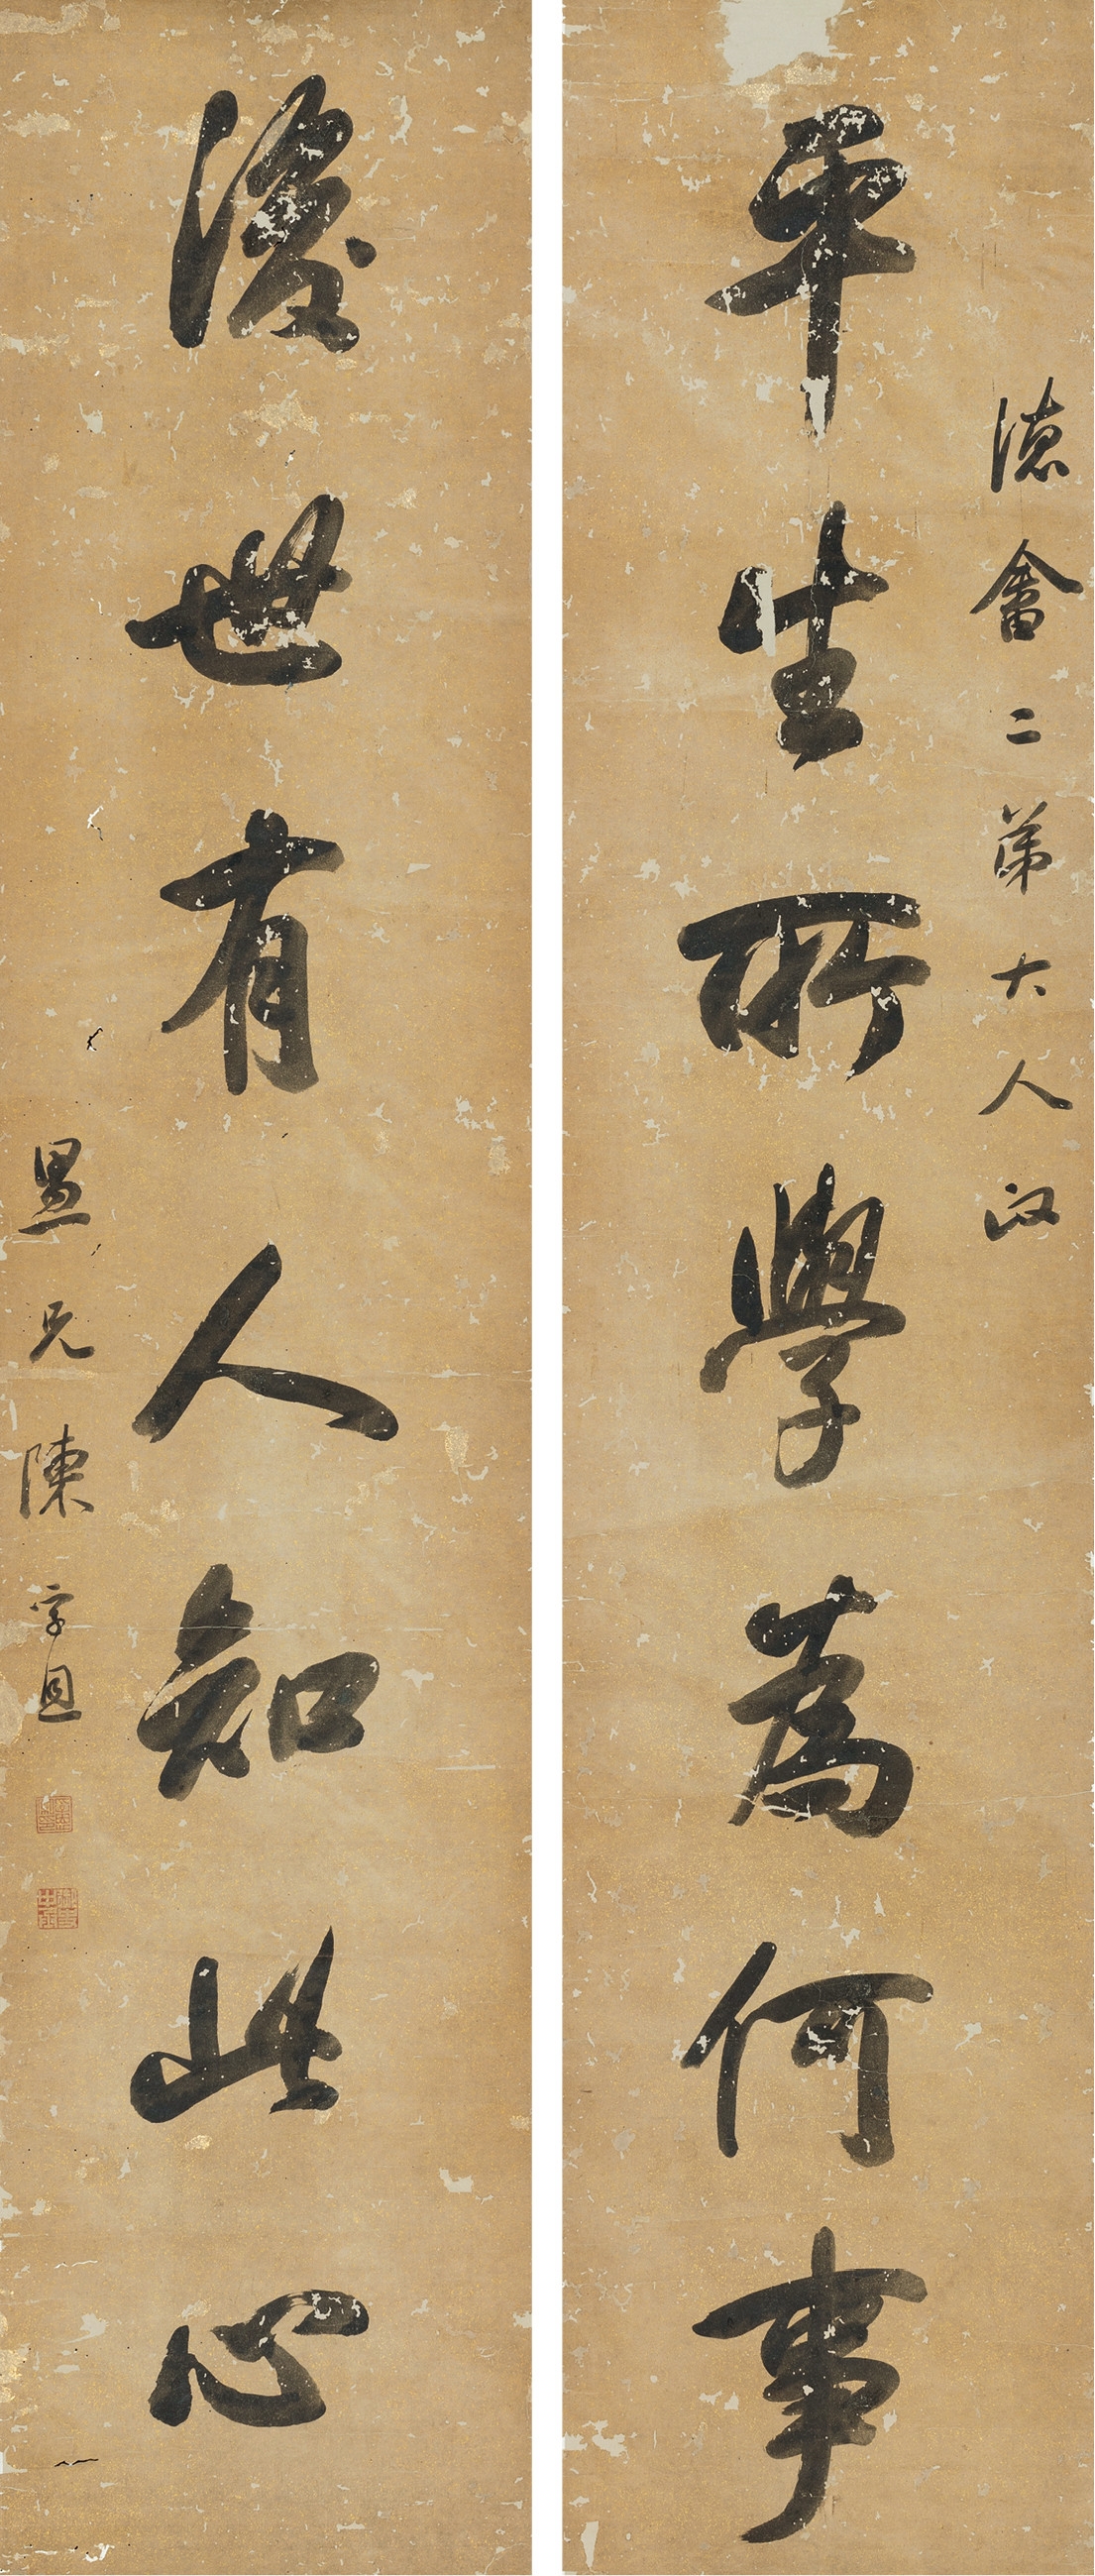 德畬二弟大人政
平生所學為何事
後世有人知此心
愚兄陳孚恩